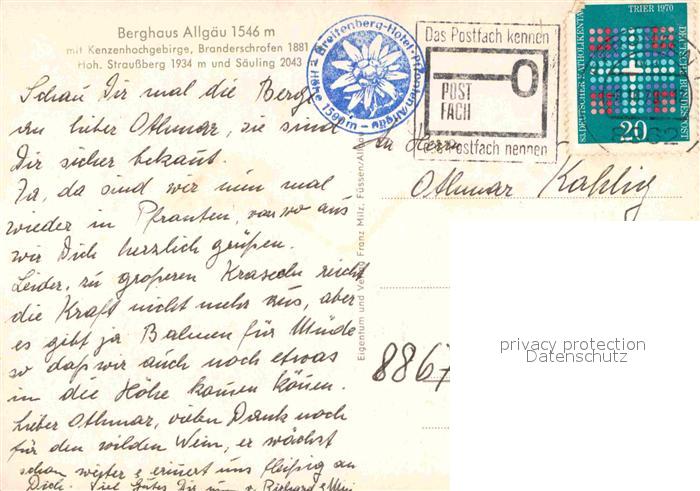 Berghaus Allgäu 1546 m
mit Kenzenhochgebirge, Branderschrofen 1881
Hoh. Straußberg 1934 m und Säuling 2043
Schau Dir mal die Berge
an lieber Othmar, sie sind
Dir sicher bekant.
Ja, da sind wir nun mal
wieder in Pfronten, von wo aus
wir Dich herzlich grüßen.
Leider, zu größeren Kraxeln reicht
die Kraft nicht mehr aus, aber
es gibt ja Bahnen für Müde
so daß wir auch noch etwas
in die Höhe kommen können.
Lieber Othmar, vielen Dank noch
für den wilden Wein, er wächst
schon weiter & erinert uns fleißig an
Dich. Viel Gutes Dir nun v. Richard &
Breitenberg-Hotel-Pfronten/Allgäu
Höhe 1590 m
Das Postfach kennen
POST
FACH
Postfach nennen
83. DEUTSCHER KATHOLIKENTAG
TRIER 1970
DEUTSCHE BUNDESPOST
20
Herrn
Othmar Kahlig
Eigentum und Verlag Franz Milz, Füssen/Allgäu
8867
privacy protection
Datenschutz